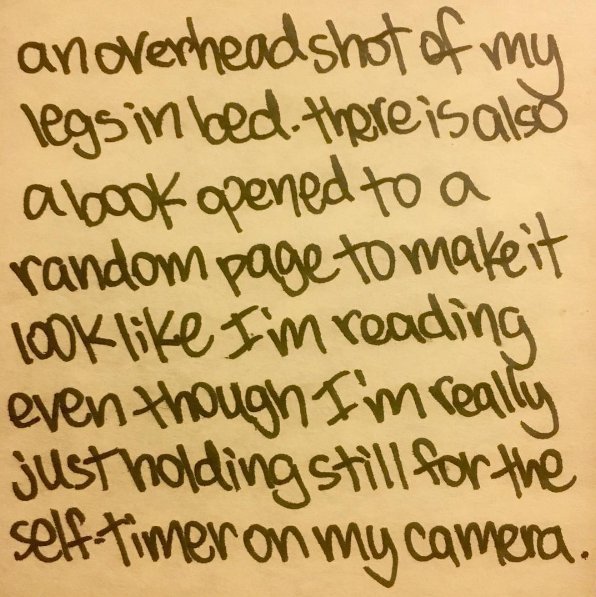 an overhead shot of my
legs in bed. there is also
a book opened to a
random page to make it
look like I'm reading
even though I'm really
just holding still for the
self-timer on my camera.